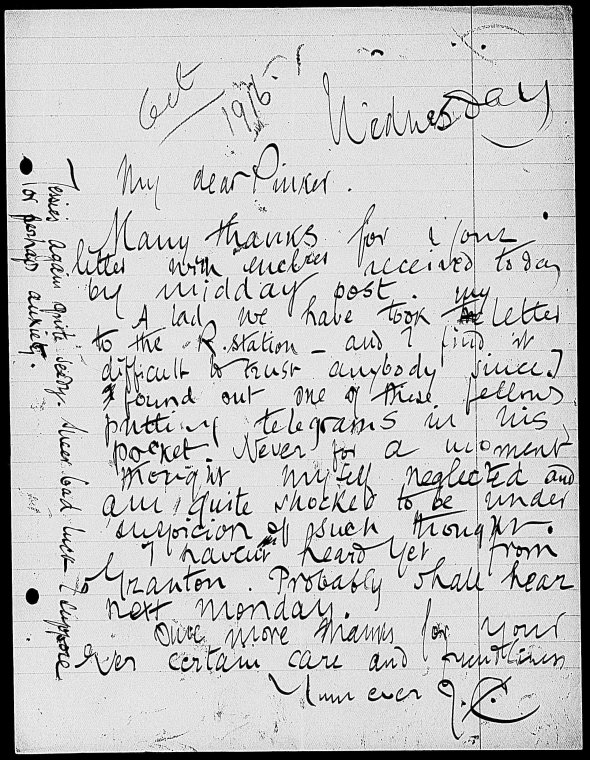 Oct
1916.
Wednesday
My dear Pinker.
Many thanks for your
letter with encl received today
by midday post.
A lad we have took my letter
to the R. station – and I find it
difficult to trust anybody since I
found out one of these fellows
putting telegrams in his
pocket. Never for a moment
thought myself neglected and
am quite shocked to be under
suspicion of such thought.
I haven't heard yet from
Granton. Probably shall hear
next monday.
Once more thanks for your
ever certain care and friendliness
Yours ever J.C.
Jessie's again quite seedy. Sheer bad luck I suppose
or perhaps anxiety.